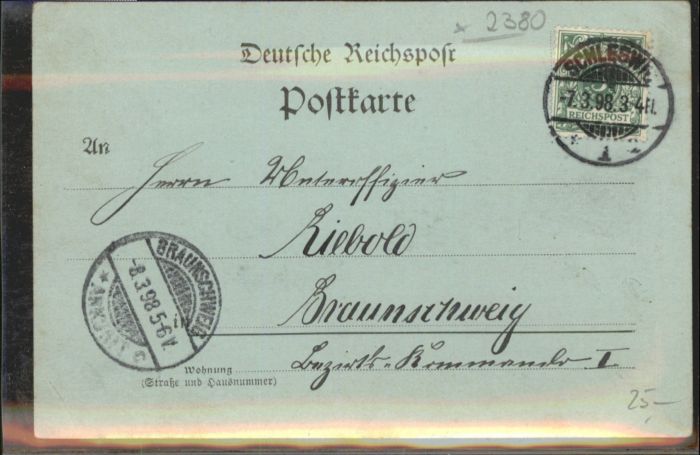 * 2380
Deutsche Reichspost
Postkarte
SCHLESWIG
-7.3.98.3-4N.
* 1 *
REICHSPOST
An
Herrn Unteroffizier
Ziebold
BRAUNSCHWEIG
-8.3.98 5-6V.
in
Braunschweig
Bezirks-Kommando I
Wohnung
(Straße und Hausnummer)
25-